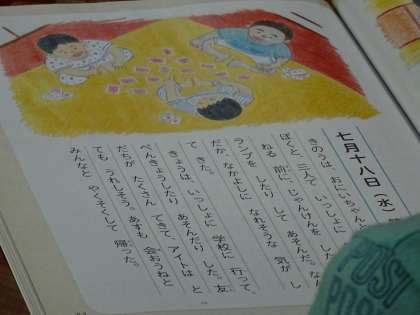 七月十八日（水）
きのうは おにいちゃんと
ぼくと、三人で いっしょに
ねる 前に じゃんけんを した
ランプを したり して あそんだ。なん
だか なかよしに なれそうな 気が し
て きた。
きょうは いっしょに 学校に 行って、
べんきょうしたり あそんだり した。友
だちが たくさん できて、アイトは と
ても うれしそう。あすも 会おうねと
みんなと やくそくして 帰った。
JUST